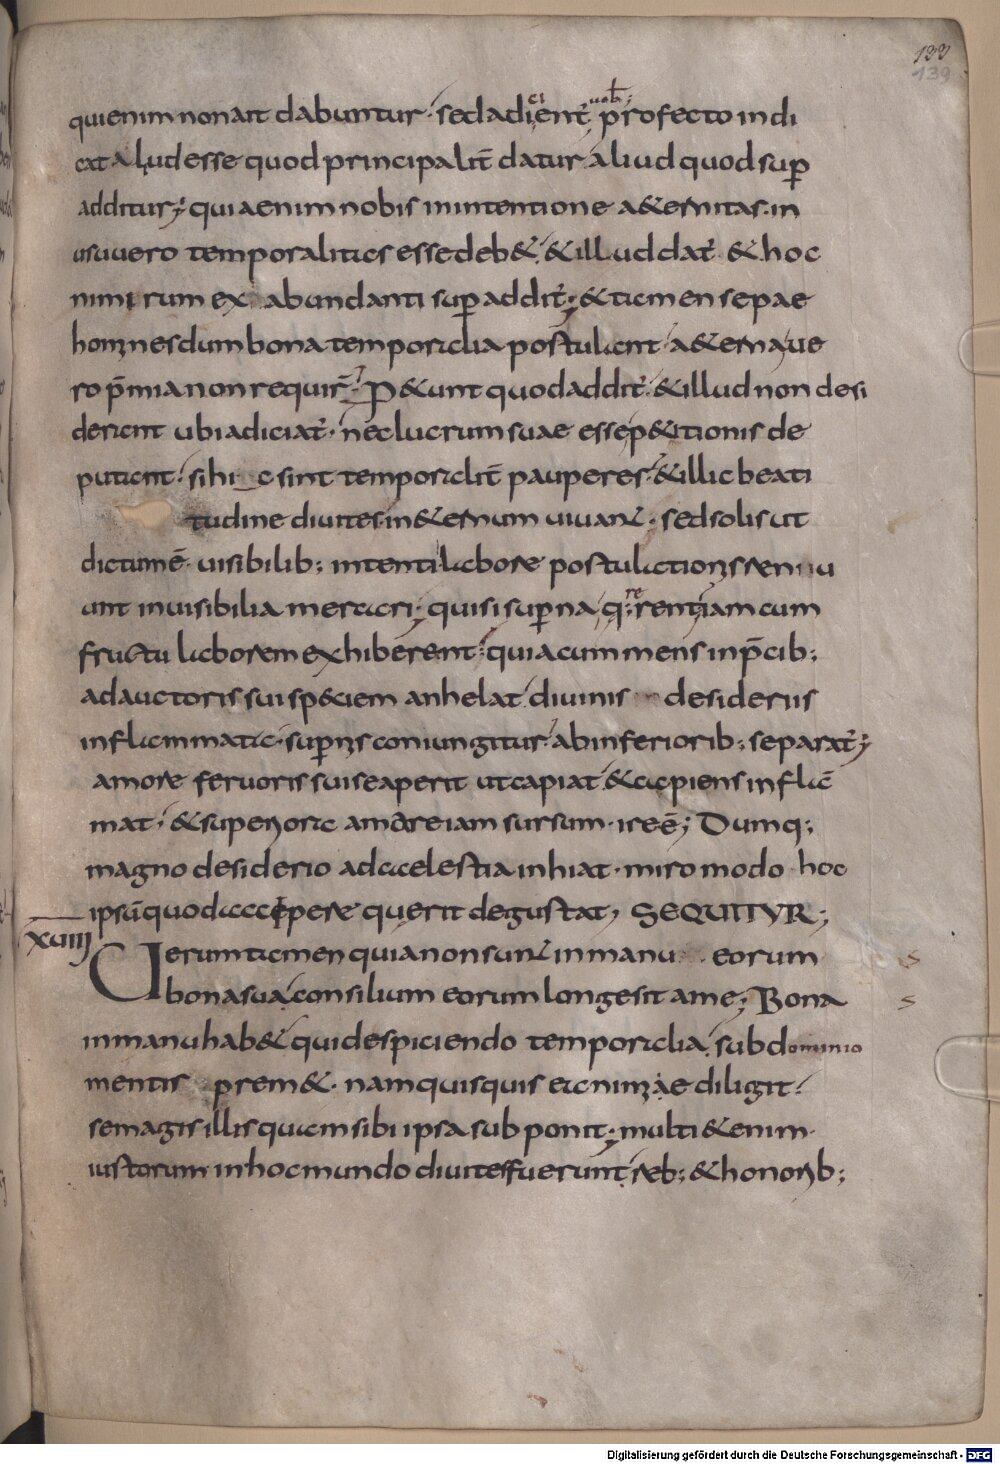 133
139
qui enim non ait dabuntur · sed adicient᷑ uob᷑; profecto indi
cat aliud esse quod principalit᷑ datur aliud quod sup̲
additur; quia enim nobis in intentione a&ernitas · in
usu uero temporalitas esse deb& · & illud dat᷑ & hoc
nimirum ex abundanti sup̲addit᷑; & tamen sepae
homines dum bona temporalia postulant · a&erna ue
ro p̄mia non requir̄ · P&unt quod addit᷑ · & illud non desi
derant ubi adiciat᷑ · nec lucrum suae esse p&itionis de
putant · si hic sint temporalit᷑ pauperes · & illic beati
tudine diuites in &ernum uiuant · sed solis ut
dictum ē uisibilib; intenti labore postulationis renuu
unt inuisibilia mercari; qui si sup̲na q;rerent iam cum
fructu laborem exhiberent · quia cum mens in p̄cib;
ad auctoris sui sp&iem anhelat diuinis desideriis
inflammata · sup̲nis coniungitur ab inferiorib; separat᷑;
amore feruoris sui se aperit ut capiat & capiens inflā
mat · & superiora amare iam sursum · ire ē; Dumq;
magno desiderio ad caelestia inhiat · miro modo hoc
ipsū quod accipere querit degustat, SEQUITVR;
XVIIII
Uerum tamen quia non sunt in manu eorum
bona sua consilium eorum longe sit a me; Bona
in manu hab& qui despiciendo temporalia sub dominio
mentis prem& · nam quisquis ea nimiae diligit ·
se magis illis quam sibi ipsa subponit; multi &enim ·
iustorum in hoc mundo diuites fuerunt reb; & honorib;
Digitalisierung gefördert durch die Deutsche Forschungsgemeinschaft - DFG